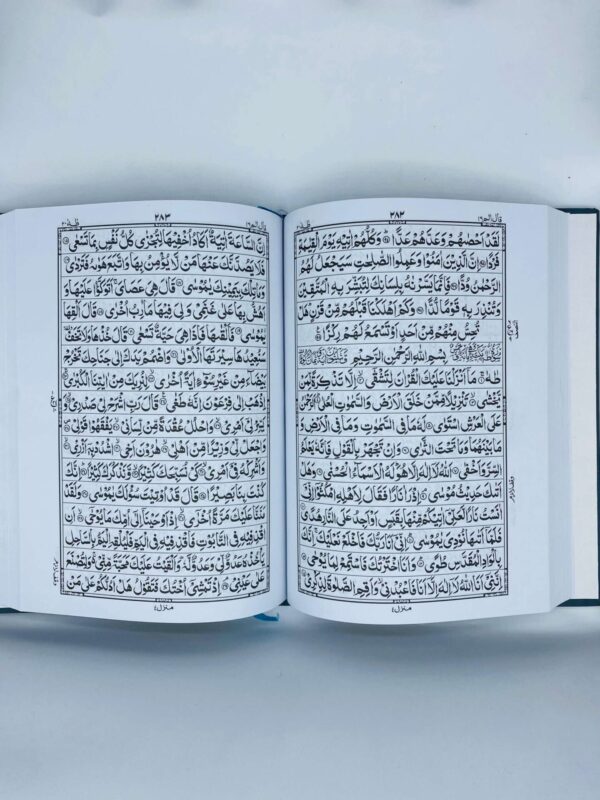 قال الم ١٦
٢٨٢
طٰهٰ ٢٠
لَقَدْ اَحْصٰىهُمْ وَعَدَّهُمْ عَدًّا ۝ وَكُلُّهُمْ اٰتِيْهِ يَوْمَ الْقِيٰمَةِ
فَرْدًا ۝ اِنَّ الَّذِيْنَ اٰمَنُوْا وَعَمِلُوا الصّٰلِحٰتِ سَيَجْعَلُ لَهُمُ
الرَّحْمٰنُ وُدًّا ۝ فَاِنَّمَا يَسَّرْنٰهُ بِلِسَانِكَ لِتُبَشِّرَ بِهِ الْمُتَّقِيْنَ
وَتُنْذِرَ بِهٖ قَوْمًا لُّدًّا ۝ وَكَمْ اَهْلَكْنَا قَبْلَهُمْ مِّنْ قَرْنٍ هَلْ
تُحِسُّ مِنْهُمْ مِّنْ اَحَدٍ اَوْ تَسْمَعُ لَهُمْ رِكْزًا ۝
بِسْمِ اللّٰهِ الرَّحْمٰنِ الرَّحِيْمِ
طٰهٰ ۝ مَاۤ اَنْزَلْنَا عَلَيْكَ الْقُرْاٰنَ لِتَشْقٰۤى ۝ اِلَّا تَذْكِرَةً لِّمَنْ
يَّخْشٰى ۝ تَنْزِيْلًا مِّمَّنْ خَلَقَ الْاَرْضَ وَالسَّمٰوٰتِ الْعُلٰى ۝ اَلرَّحْمٰنُ
عَلَى الْعَرْشِ اسْتَوٰى ۝ لَهٗ مَا فِى السَّمٰوٰتِ وَمَا فِى الْاَرْضِ وَ
مَا بَيْنَهُمَا وَمَا تَحْتَ الثَّرٰى ۝ وَاِنْ تَجْهَرْ بِالْقَوْلِ فَاِنَّهٗ يَعْلَمُ
السِّرَّ وَاَخْفٰى ۝ اَللّٰهُ لَاۤ اِلٰهَ اِلَّا هُوَ لَهُ الْاَسْمَآءُ الْحُسْنٰى ۝ وَهَلْ
اَتٰىكَ حَدِيْثُ مُوْسٰى ۝ اِذْ رَاٰ نَارًا فَقَالَ لِاَهْلِهِ امْكُثُوْۤا اِنِّيْۤ
اٰنَسْتُ نَارًا لَّعَلِّيْۤ اٰتِيْكُمْ مِّنْهَا بِقَبَسٍ اَوْ اَجِدُ عَلَى النَّارِ هُدًى ۝
فَلَمَّاۤ اَتٰىهَا نُوْدِيَ يٰمُوْسٰى ۝ اِنِّيْۤ اَنَا رَبُّكَ فَاخْلَعْ نَعْلَيْكَ اِنَّكَ
بِالْوَادِ الْمُقَدَّسِ طُوًى ۝ وَاَنَا اخْتَرْتُكَ فَاسْتَمِعْ لِمَا يُوْحٰى ۝
اِنَّنِيْۤ اَنَا اللّٰهُ لَاۤ اِلٰهَ اِلَّاۤ اَنَا فَاعْبُدْنِيْ وَاَقِمِ الصَّلٰوةَ لِذِكْرِيْ ۝
منزل ٤
قال الم ١٦
٢٨٣
طٰهٰ ٢٠
اِنَّ السَّاعَةَ اٰتِيَةٌ اَكَادُ اُخْفِيْهَا لِتُجْزٰى كُلُّ نَفْسٍۭ بِمَا تَسْعٰى ۝
فَلَا يَصُدَّنَّكَ عَنْهَا مَنْ لَّا يُؤْمِنُ بِهَا وَاتَّبَعَ هَوٰىهُ فَتَرْدٰى ۝
وَمَا تِلْكَ بِيَمِيْنِكَ يٰمُوْسٰى ۝ قَالَ هِيَ عَصَايَ اَتَوَكَّؤُا عَلَيْهَا وَ
اَهُشُّ بِهَا عَلٰى غَنَمِيْ وَلِيَ فِيْهَا مَاٰرِبُ اُخْرٰى ۝ قَالَ اَلْقِهَا
يٰمُوْسٰى ۝ فَاَلْقٰىهَا فَاِذَا هِيَ حَيَّةٌ تَسْعٰى ۝ قَالَ خُذْهَا وَلَا تَخَفْ
سَنُعِيْدُهَا سِيْرَتَهَا الْاُوْلٰى ۝ وَاضْمُمْ يَدَكَ اِلٰى جَنَاحِكَ تَخْرُجْ
بَيْضَآءَ مِنْ غَيْرِ سُوْٓءٍ اٰيَةً اُخْرٰى ۝ لِنُرِيَكَ مِنْ اٰيٰتِنَا الْكُبْرٰى ۝
اِذْهَبْ اِلٰى فِرْعَوْنَ اِنَّهٗ طَغٰى ۝ قَالَ رَبِّ اشْرَحْ لِيْ صَدْرِيْ ۝ وَ
يَسِّرْ لِيْۤ اَمْرِيْ ۝ وَاحْلُلْ عُقْدَةً مِّنْ لِّسَانِيْ ۝ يَفْقَهُوْا قَوْلِيْ ۝
وَاجْعَلْ لِّيْ وَزِيْرًا مِّنْ اَهْلِيْ ۝ هٰرُوْنَ اَخِى ۝ اشْدُدْ بِهٖۤ اَزْرِيْ ۝
وَاَشْرِكْهُ فِيْۤ اَمْرِيْ ۝ كَيْ نُسَبِّحَكَ كَثِيْرًا ۝ وَّنَذْكُرَكَ كَثِيْرًا ۝ اِنَّكَ
كُنْتَ بِنَا بَصِيْرًا ۝ قَالَ قَدْ اُوْتِيْتَ سُؤْلَكَ يٰمُوْسٰى ۝ وَلَقَدْ
مَنَنَّا عَلَيْكَ مَرَّةً اُخْرٰۤى ۝ اِذْ اَوْحَيْنَاۤ اِلٰۤى اُمِّكَ مَا يُوْحٰۤى ۝ اَنِ
اقْذِفِيْهِ فِى التَّابُوْتِ فَاقْذِفِيْهِ فِى الْيَمِّ فَلْيُلْقِهِ الْيَمُّ بِالسَّاحِلِ
يَاْخُذْهُ عَدُوٌّ لِّيْ وَعَدُوٌّ لَّهٗ وَاَلْقَيْتُ عَلَيْكَ مَحَبَّةً مِّنِّيْ وَلِتُصْنَعَ
عَلٰى عَيْنِيْ ۝ اِذْ تَمْشِيْۤ اُخْتُكَ فَتَقُوْلُ هَلْ اَدُلُّكُمْ عَلٰى مَنْ
منزل ٤